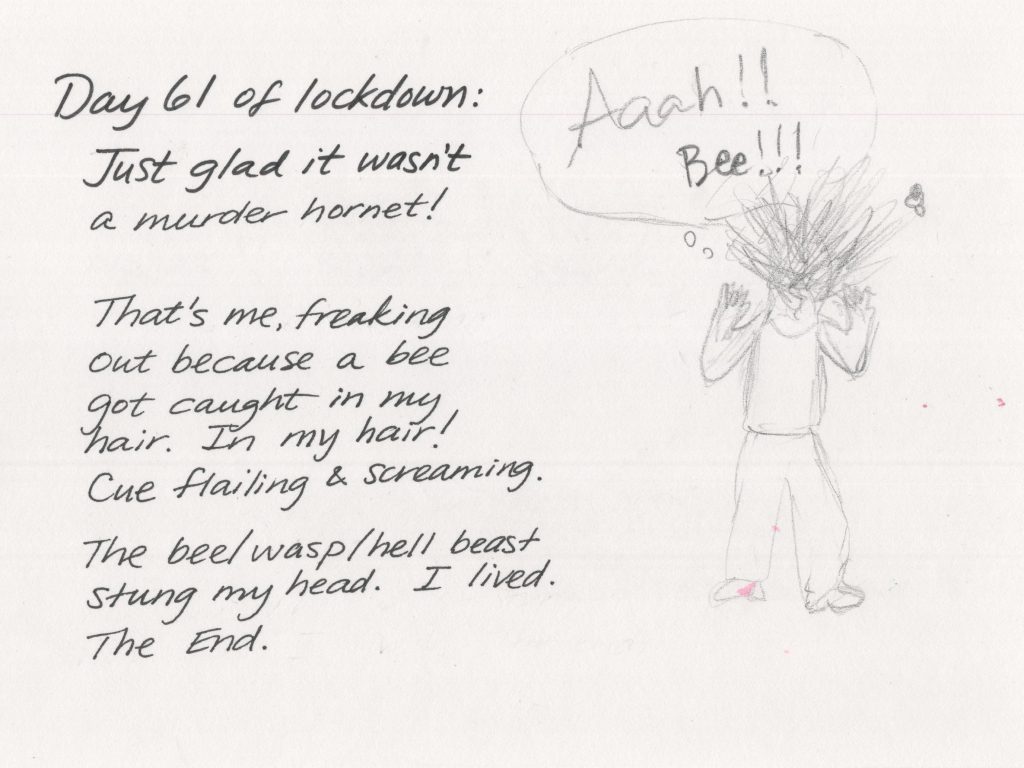 Day 61 of lockdown:
Just glad it wasn't
a murder hornet!
That's me, freaking
out because a bee
got caught in my
hair. In my hair!
Cue flailing & screaming.
The bee/wasp/hell beast
stung my head. I lived.
The End.
Aaah!!
Bee!!!